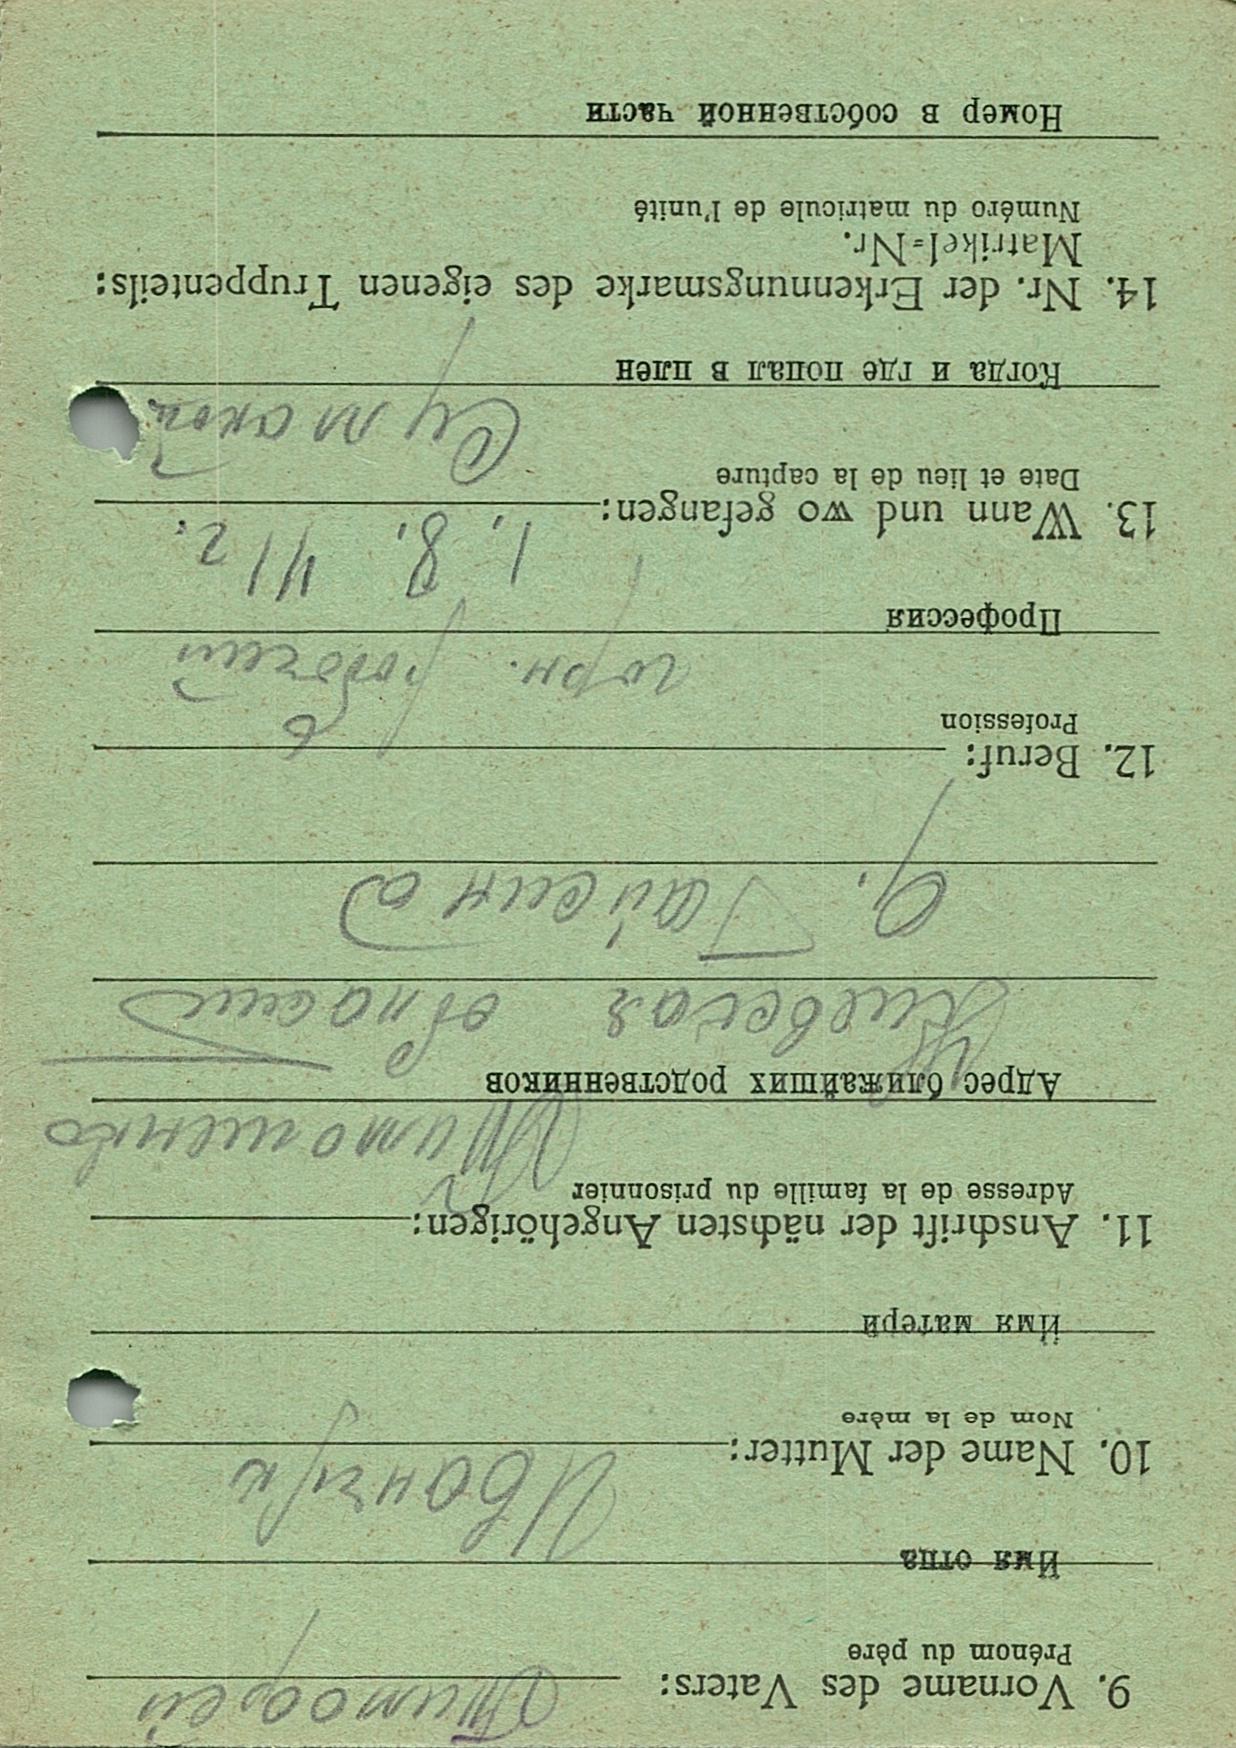 9. Vorname des Vaters: Тимофей
Prénom du père
Имя отца
10. Name der Mutter: Иванчук
Nom de la mère
Имя матери
11. Anschrift der nächsten Angehörigen:
Adresse de la famille du prisonnier
Тимошенко
Адрес ближайших родственников
Киевская область
Гайсина
12. Beruf:
Profession
рабочий
Профессия
13. Wann und wo gefangen: 1. 8. 41 г.
Date et lieu de la capture
Когда и где попал в плен
14. Nr. der Erkennungsmarke des eigenen Truppenteils:
Matrikel=Nr.
Numéro du matricule de l'unité
Номер в собственной части